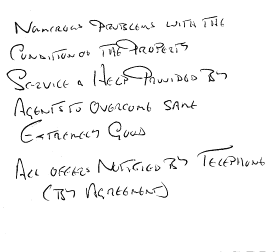 Numerous Problems with the
Condition of the Property
Service & Help Provided By
Agents to Overcome Same
Extremely Good
All offers Notified By Telephone
(By Agreement)